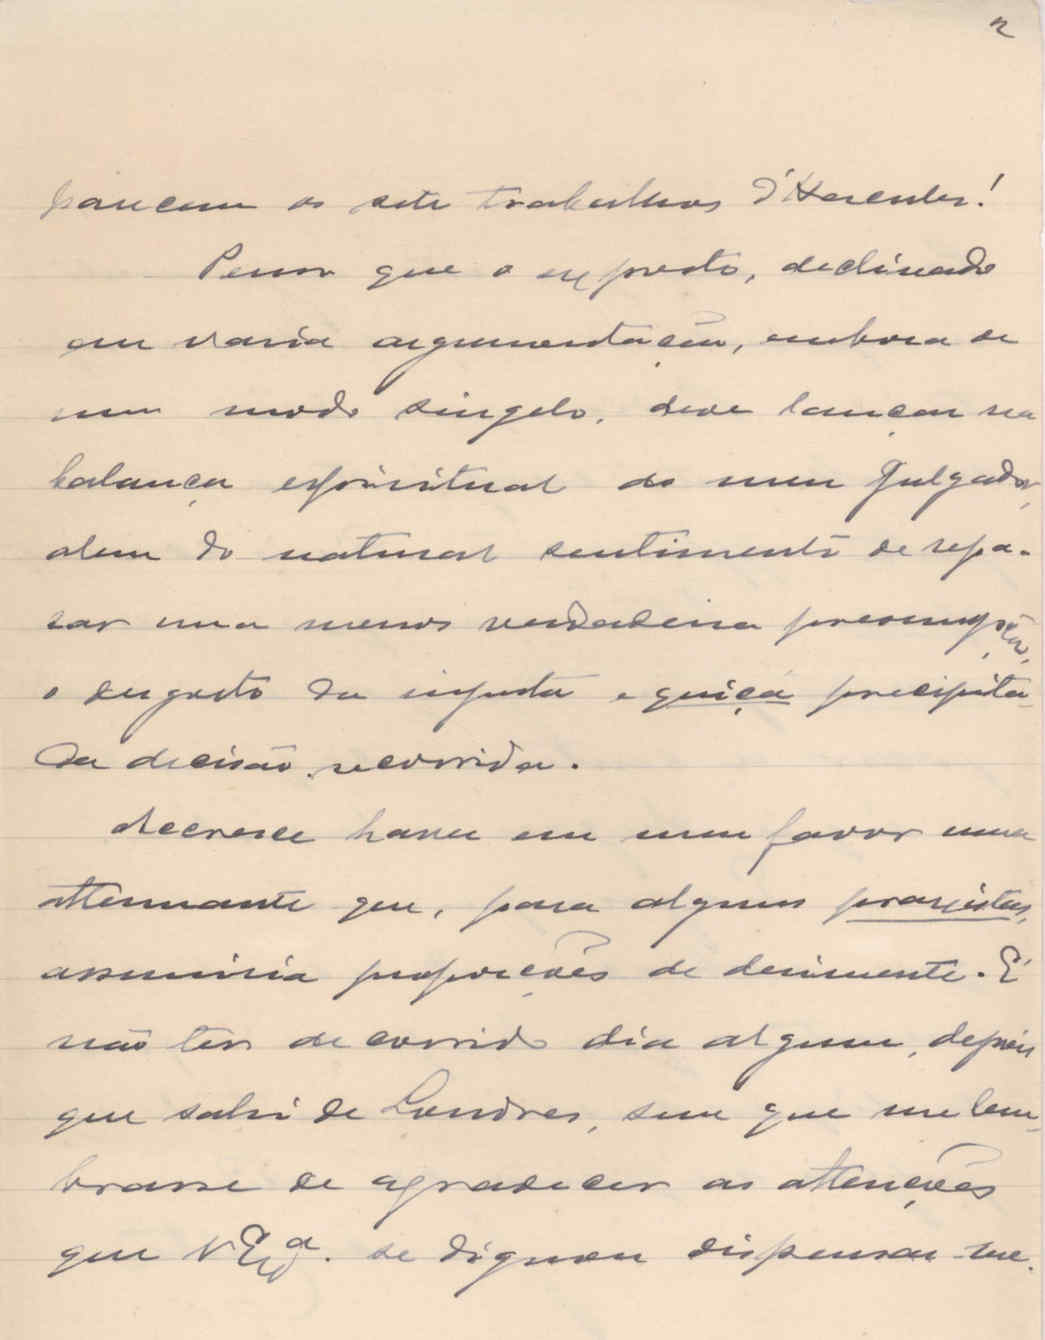 2
pareceam os sete trabalhos d'Hercules!
Penso que o exposto, declinado
em varia argumentação, embora de
um modo singelo, deve lançar na
balança espiritual do meu Julgador,
alem do natural sentimento de repa-
rar uma menos verdadeira presumpção,
o desgosto da injusta e quiçá precipita-
da decisão recorrida.
Accresce haver em meu favor uma
attenuante que, para alguns praxistas,
assumiria proporções de dirimente. É
não ter decorrido dia algum, depois
que sahi de Londres, sem que me lem-
brasse de agradecer as attenções
que V. Exª. se dignou dispensar-me.